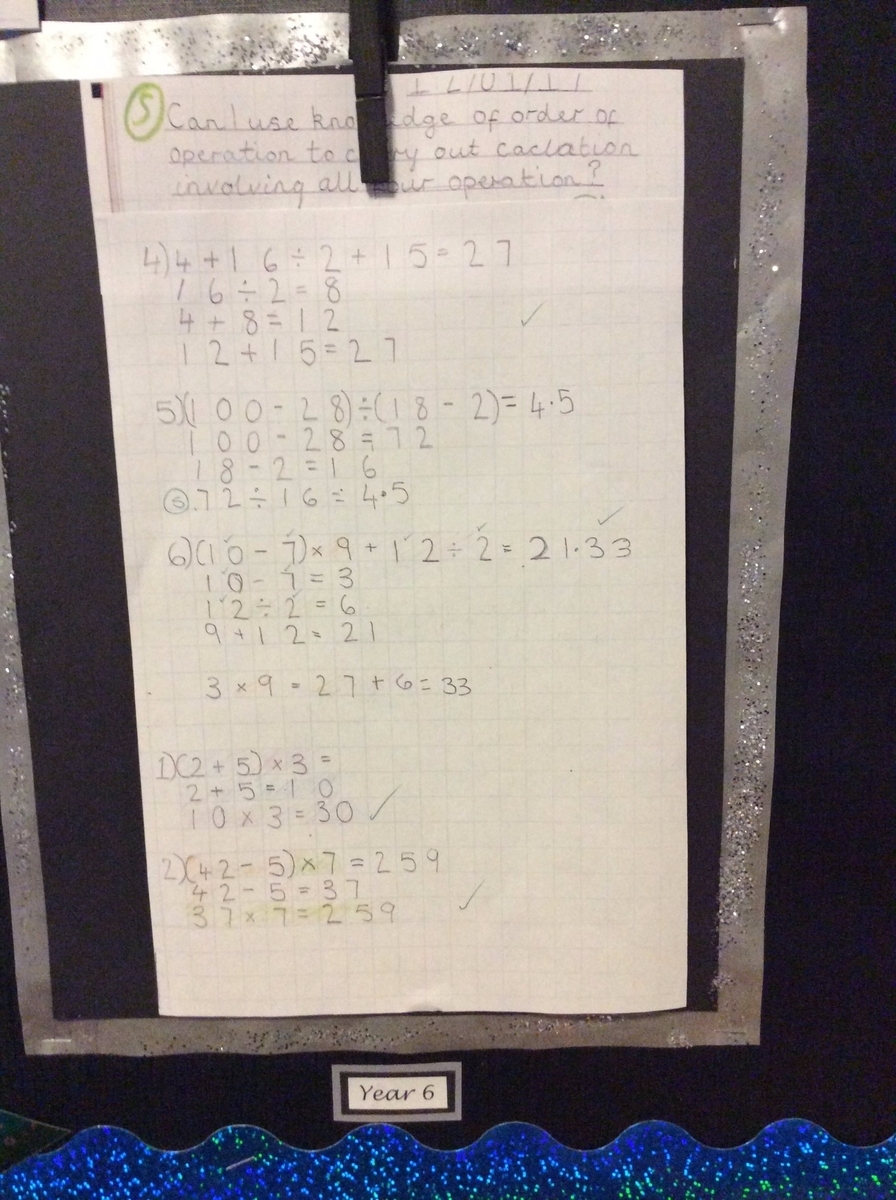 5 Can I use knowledge of order of
operation to carry out caclation
involving all four operation?
4) 4 + 16 ÷ 2 + 15 = 27
16 ÷ 2 = 8
4 + 8 = 12
12 + 15 = 27
5) (100 - 28) ÷ (18 - 2) = 4.5
100 - 28 = 72
18 - 2 = 16
72 ÷ 16 = 4.5
6) (10 - 7) × 9 + 12 ÷ 2 = 21.33
10 - 7 = 3
12 ÷ 2 = 6
9 + 12 = 21
3 × 9 = 27 + 6 = 33
1) (2 + 5) × 3 =
2 + 5 = 10
10 × 3 = 30
2) (42 - 5) × 7 = 259
42 - 5 = 37
37 × 7 = 259
Year 6